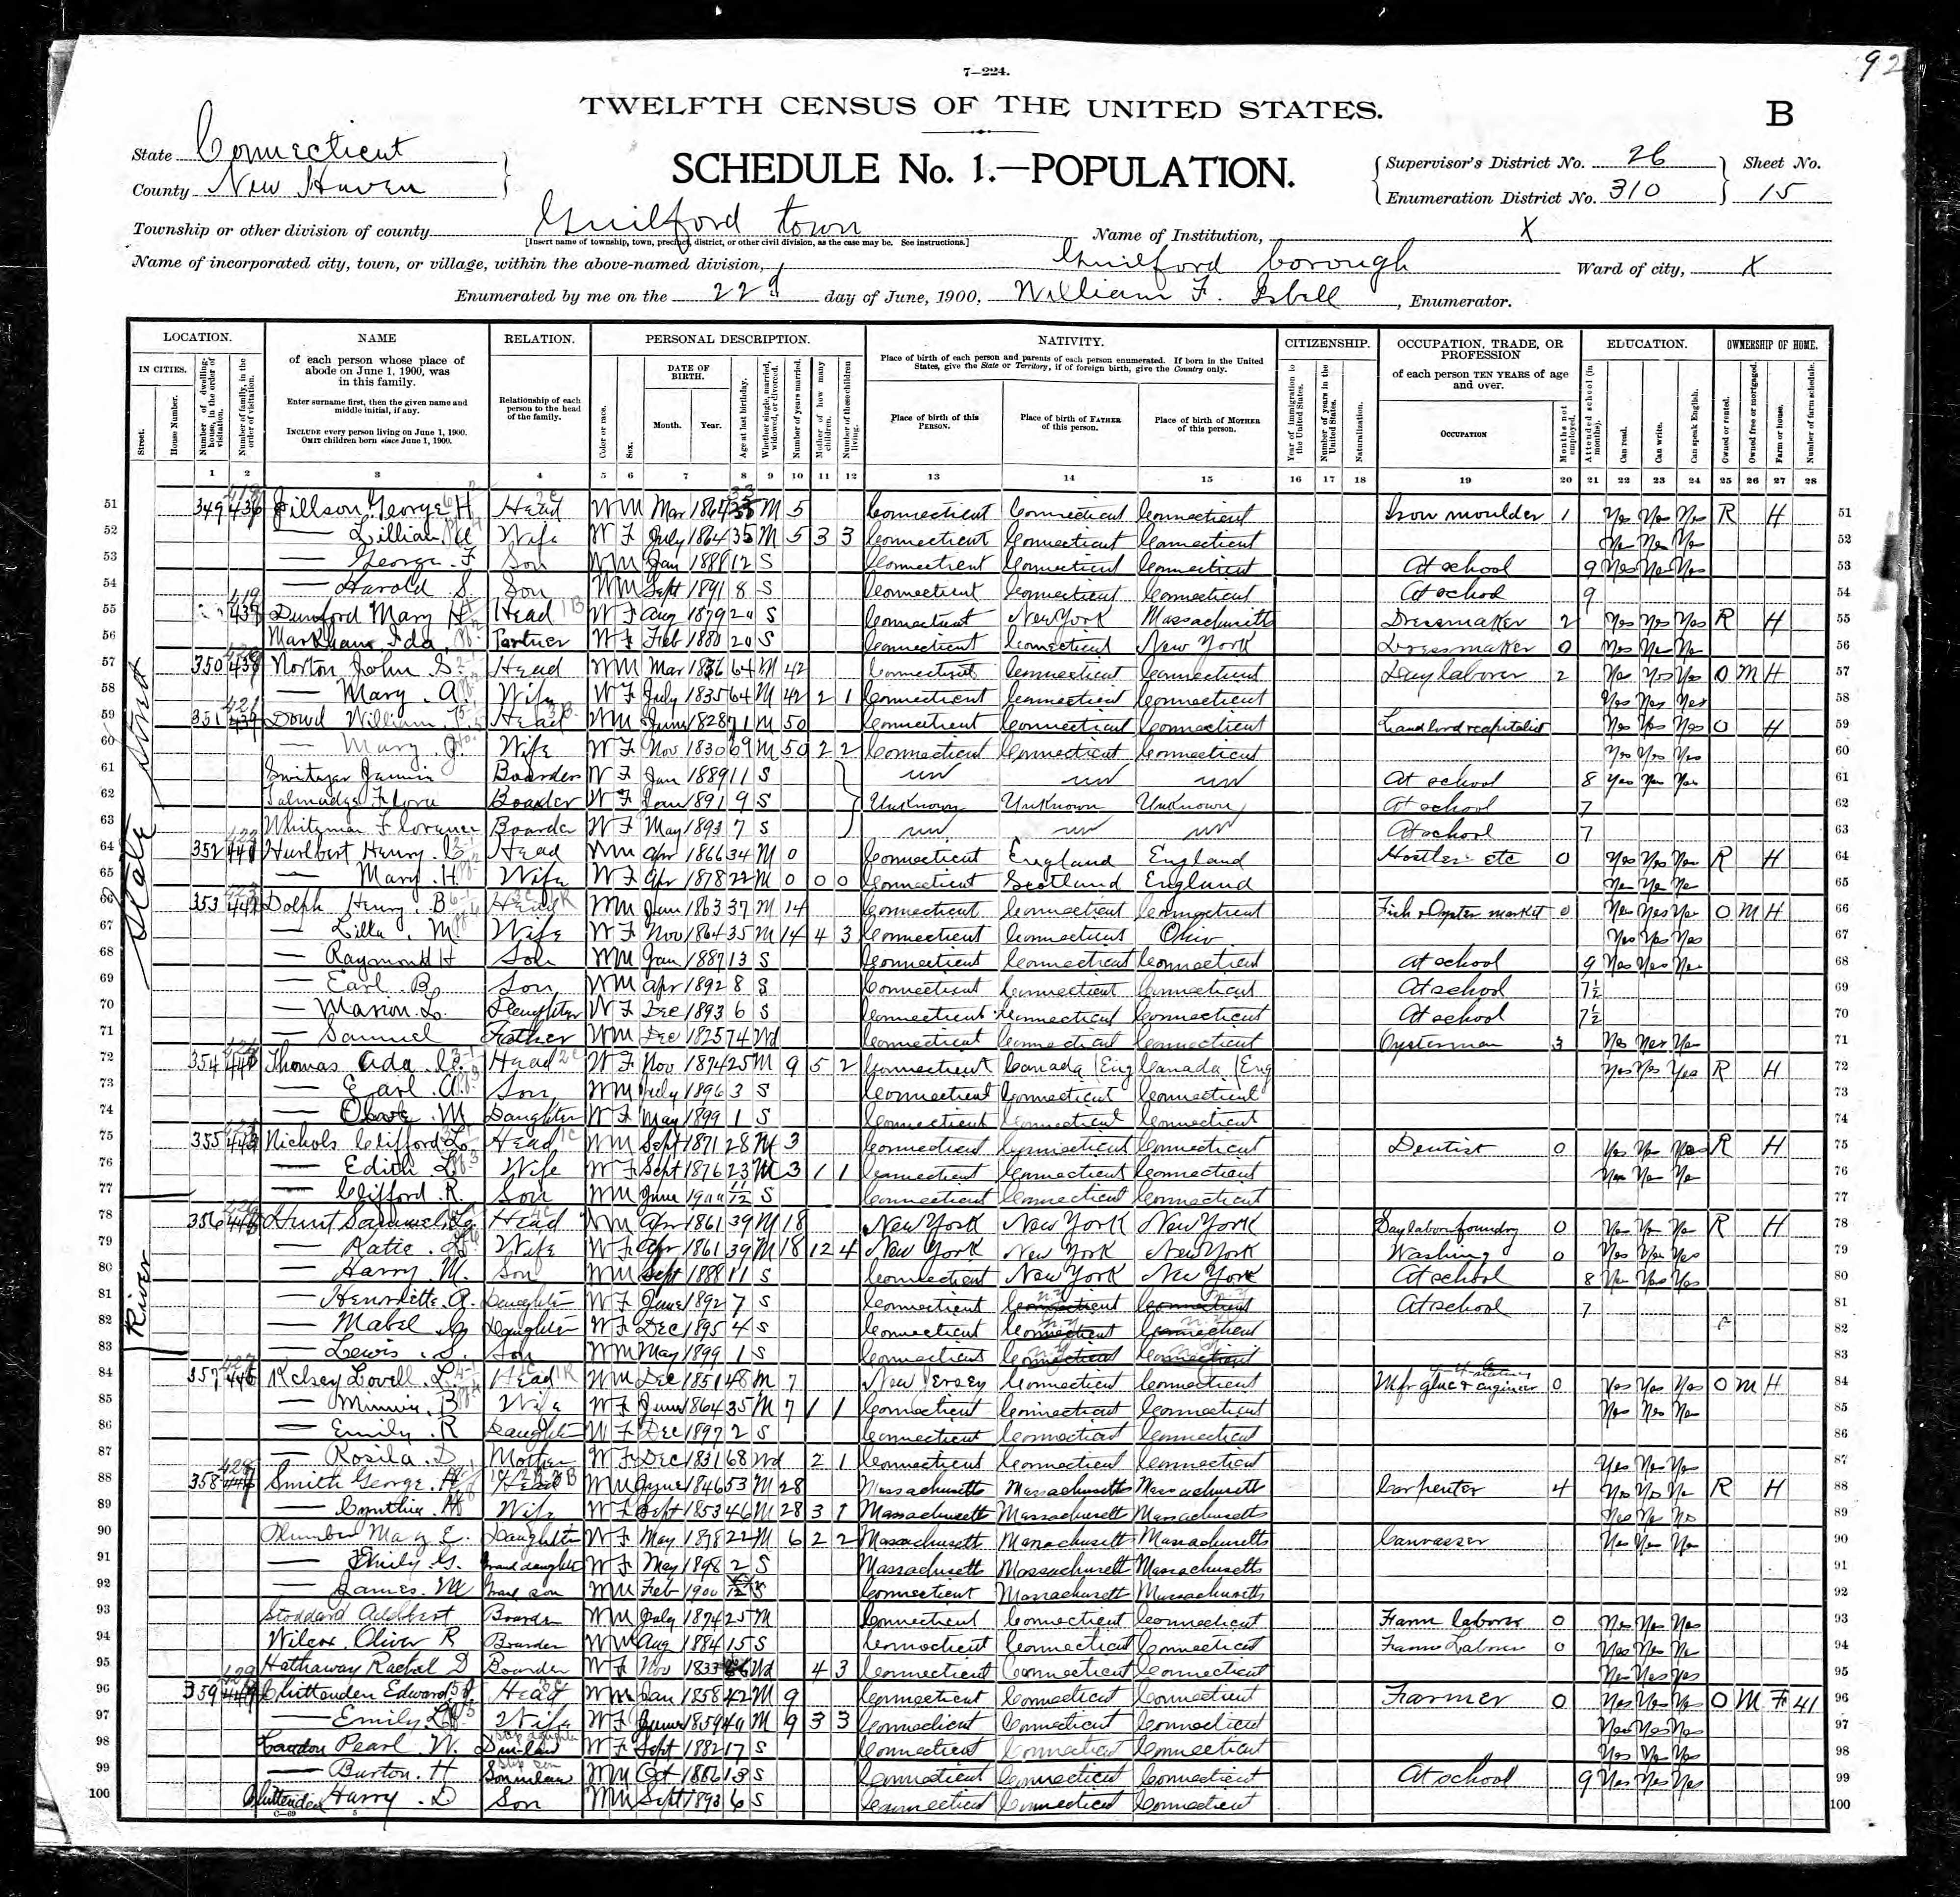 92
7—224.
TWELFTH CENSUS OF THE UNITED STATES.
B
State Connecticut
County New Haven
SCHEDULE No. 1.—POPULATION.
Supervisor's District No. 26
Enumeration District No. 310
Sheet No.
15
Township or other division of county Guilford town
[Insert name of township, town, precinct, district, or other civil division, as the case may be. See instructions.]
Name of Institution, X
Name of incorporated city, town, or village, within the above-named division, Guilford borough
Ward of city, X
Enumerated by me on the 22d day of June, 1900, William F. Isbell, Enumerator.
LOCATION. NAME RELATION. PERSONAL DESCRIPTION. NATIVITY. CITIZENSHIP. OCCUPATION, TRADE, OR PROFESSION EDUCATION. OWNERSHIP OF HOME.
IN CITIES.
Street.
House Number.
Number of dwelling-house, in the order of visitation.
Number of family, in the order of visitation.
of each person whose place of abode on June 1, 1900, was in this family.
Enter surname first, then the given name and middle initial, if any.
INCLUDE every person living on June 1, 1900.
OMIT children born since June 1, 1900.
Relationship of each person to the head of the family.
Color or race.
Sex.
DATE OF BIRTH.
Month. Year.
Age at last birthday.
Whether single, married, widowed, or divorced.
Number of years married.
Mother of how many children.
Number of these children living.
Place of birth of each person and parents of each person enumerated. If born in the United States, give the State or Territory; if of foreign birth, give the Country only.
Place of birth of this PERSON.
Place of birth of FATHER of this person.
Place of birth of MOTHER of this person.
Year of immigration to the United States.
Number of years in the United States.
Naturalization.
of each person TEN YEARS of age and over.
OCCUPATION
Months not employed.
Attended school (in months).
Can read.
Can write.
Can speak English.
Owned or rented.
Owned free or mortgaged.
Farm or house.
Number of farm schedule.
1 2 3 4 5 6 7 8 9 10 11 12 13 14 15 16 17 18 19 20 21 22 23 24 25 26 27 28
State Street
River
51 349 Jillson George H Head W M Mar 1864 M 5 Connecticut Connecticut Connecticut Iron moulder 1 Yes Yes Yes R H 51
52 — Lillian Wife W F July 1864 35 M 5 3 3 Connecticut Connecticut Connecticut Yes Yes Yes 52
53 — George F Son W M Jan 1888 12 S Connecticut Connecticut Connecticut At school 9 Yes Yes Yes 53
54 — Harold S Son W M Sept 1891 8 S Connecticut Connecticut Connecticut At school 9 54
55 Mary H Head W F Aug 1879 20 S Connecticut New York Massachusetts Dressmaker 2 Yes Yes Yes R H 55
56 Markham Ida Partner W F Feb 1880 20 S Connecticut Connecticut New York Dressmaker 0 Yes Yes Yes 56
57 350 Norton John S. Head W M Mar 1836 64 M 42 Connecticut Connecticut Connecticut Day laborer 2 Yes Yes Yes O M H 57
58 — Mary A Wife W F July 1835 64 M 42 2 1 Connecticut Connecticut Connecticut Yes Yes Yes 58
59 351 Dowd William Head W M June 1828 71 M 50 Connecticut Connecticut Connecticut Landlord & capitalist Yes Yes Yes O H 59
60 — Mary Wife W F Nov 1830 69 M 50 2 2 Connecticut Connecticut Connecticut Yes Yes Yes 60
61 Boarder W F Jan 1889 11 S un un un At school 8 Yes Yes Yes 61
62 Talmadge Flora Boarder W F Jan 1891 9 S Unknown Unknown Unknown At school 7 62
63 Whitman Florance Boarder W F May 1893 7 S un un un At school 7 63
64 352 Hurlbert Henry Head W M Apr 1866 34 M 0 Connecticut England England Hostler etc 0 Yes Yes Yes R H 64
65 — Mary H Wife W F Apr 1878 22 M 0 0 0 Connecticut Scotland England Yes Yes Yes 65
66 353 Dolph Henry B Head W M Jan 1863 37 M 14 Connecticut Connecticut Connecticut Fish & Oyster market 0 Yes Yes Yes O M H 66
67 — Lilla M Wife W F Nov 1864 35 M 14 4 3 Connecticut Connecticut Ohio Yes Yes Yes 67
68 — Raymond H Son W M Jan 1887 13 S Connecticut Connecticut Connecticut At school 9 Yes Yes Yes 68
69 — Earl B Son W M Apr 1892 8 S Connecticut Connecticut Connecticut At school 7½ 69
70 — Marion L. Daughter W F Dec 1893 6 S Connecticut Connecticut Connecticut At school 7½ 70
71 — Samuel Father W M Dec 1825 74 Wd Connecticut Connecticut Connecticut Oysterman 3 Yes Yes Yes 71
72 354 Thomas Ada Head W F Nov 1874 25 M 9 5 2 Connecticut Canada Eng Canada Eng Yes Yes Yes R H 72
73 — Earl A Son W M July 1896 3 S Connecticut Connecticut Connecticut 73
74 — M Daughter W F May 1899 1 S Connecticut Connecticut Connecticut 74
75 355 Nichols Clifford Head W M Sept 1871 28 M 3 Connecticut Connecticut Connecticut Dentist 0 Yes Yes Yes R H 75
76 — Edith L Wife W F Sept 1876 23 M 3 1 1 Connecticut Connecticut Connecticut Yes Yes Yes 76
77 — Clifford R. Son W M June 11/12 S Connecticut Connecticut Connecticut 77
78 356 Hunt Samuel Head W M Apr 1861 39 M 18 New York New York New York Day labor foundry 0 Yes Yes Yes R H 78
79 — Katie Wife W F Apr 1861 39 M 18 12 4 New York New York New York Washing 0 Yes Yes Yes 79
80 — Harry M. Son W M Sept 1888 11 S Connecticut New York New York At school 8 Yes Yes Yes 80
81 — Henriette A. Daughter W F June 1892 7 S Connecticut Connecticut Connecticut At school 7 81
82 — Mabel Daughter W F Dec 1895 4 S Connecticut Connecticut Connecticut 82
83 — Lewis S. Son W M May 1899 1 S Connecticut Connecticut Connecticut 83
84 357 Kelsey Lovell L. Head W M Dec 1851 48 M 7 New Jersey Connecticut Connecticut Mfr glue & engineer 0 Yes Yes Yes O M H 84
85 — Minnie B Wife W F June 1864 35 M 7 1 1 Connecticut Connecticut Connecticut Yes Yes Yes 85
86 — Emily R Daughter W F Dec 1897 2 S Connecticut Connecticut Connecticut 86
87 — Rosila D Mother W F Dec 1831 68 Wd 2 1 Connecticut Connecticut Connecticut Yes Yes Yes 87
88 358 Smith George H Head W M June 1846 53 M 28 Massachusetts Massachusetts Massachusetts Carpenter 4 Yes Yes Yes R H 88
89 — Cynthia Wife W F Sept 1853 46 M 28 3 1 Massachusetts Massachusetts Massachusetts Yes Yes Yes 89
90 Mary E. Daughter W F May 1878 22 M 6 2 2 Massachusetts Massachusetts Massachusetts Canvasser Yes Yes Yes 90
91 — Emily G. Grand daughter W F May 1898 2 S Massachusetts Massachusetts Massachusetts 91
92 — James M Grand son W M Feb 1900 S Connecticut Massachusetts Massachusetts 92
93 Stoddard Boarder W M July 1874 25 M Connecticut Connecticut Connecticut Farm laborer 0 Yes Yes Yes 93
94 Wilcox Oliver R Boarder W M Aug 1884 15 S Connecticut Connecticut Connecticut Farm Laborer 0 Yes Yes Yes 94
95 Hathaway Rachel D Boarder W F Nov 1833 66 Wd 4 3 Connecticut Connecticut Connecticut Yes Yes Yes 95
96 359 Chittenden Edward Head W M Jan 1858 42 M 9 Connecticut Connecticut Connecticut Farmer 0 Yes Yes Yes O M F 41 96
97 — Emily L Wife W F June 1859 M 9 3 3 Connecticut Connecticut Connecticut Yes Yes Yes 97
98 Pearl W. W F Sept 1882 17 S Connecticut Connecticut Connecticut Yes Yes Yes 98
99 — Burton H Son in law W M Oct 1886 13 S Connecticut Connecticut Connecticut At school 9 Yes Yes Yes 99
100 Chittenden Harry D Son W M Sept 1893 6 S Connecticut Connecticut Connecticut 100